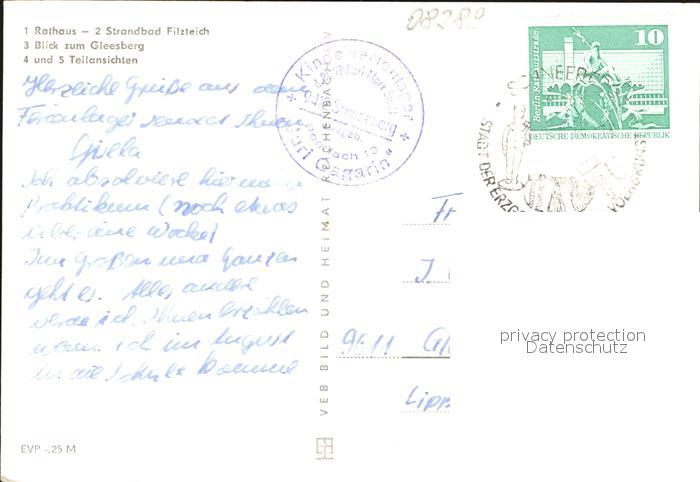 1 Rathaus — 2 Strandbad Filzteich
3 Blick zum Gleesberg
4 und 5 Teilansichten
Herzliche Grüße aus dem
Ferienlager sendet Ihnen
Gisela
Ich absolviere hier mein
Praktikum (noch etwas
über eine Woche)
Im Großen und Ganzen
geht es. Alles andere
werde ich Ihnen erzählen
wenn ich im August
in die Schule komme
EVP -,25 M
VEB BILD UND HEIMAT REICHENBACH V
Kinderferienlager
Schneeberg
Postfach
"Juri Gagarin"
10
Berlin Rathausstraße
DEUTSCHE DEMOKRATISCHE REPUBLIK
SCHNEEBERG
STADT DER
VOLKSKUNST
Fr
J.
9611
Lipp
privacy protection
Datenschutz